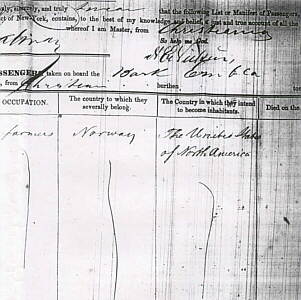 aly, sincerely, and truly swear that the following List or Manifest of Passengers
ct of New-York, contains, to the best of my knowledge and belief, a just and true account of all the
whereof I am Master, from Christiania
So help me God.
SSENGERS, taken on board the Bark
from burthen
OCCUPATION. The country to which they severally belong. The Country in which they intend to become inhabitants. Died on the
farmers Norway The United States
of North America